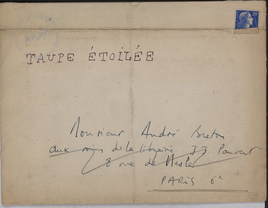 TAUPE ÉTOILÉE
Monsieur André Breton
aux soins de la librairie JJ Pauvert
8 rue de Nesle
PARIS 6e